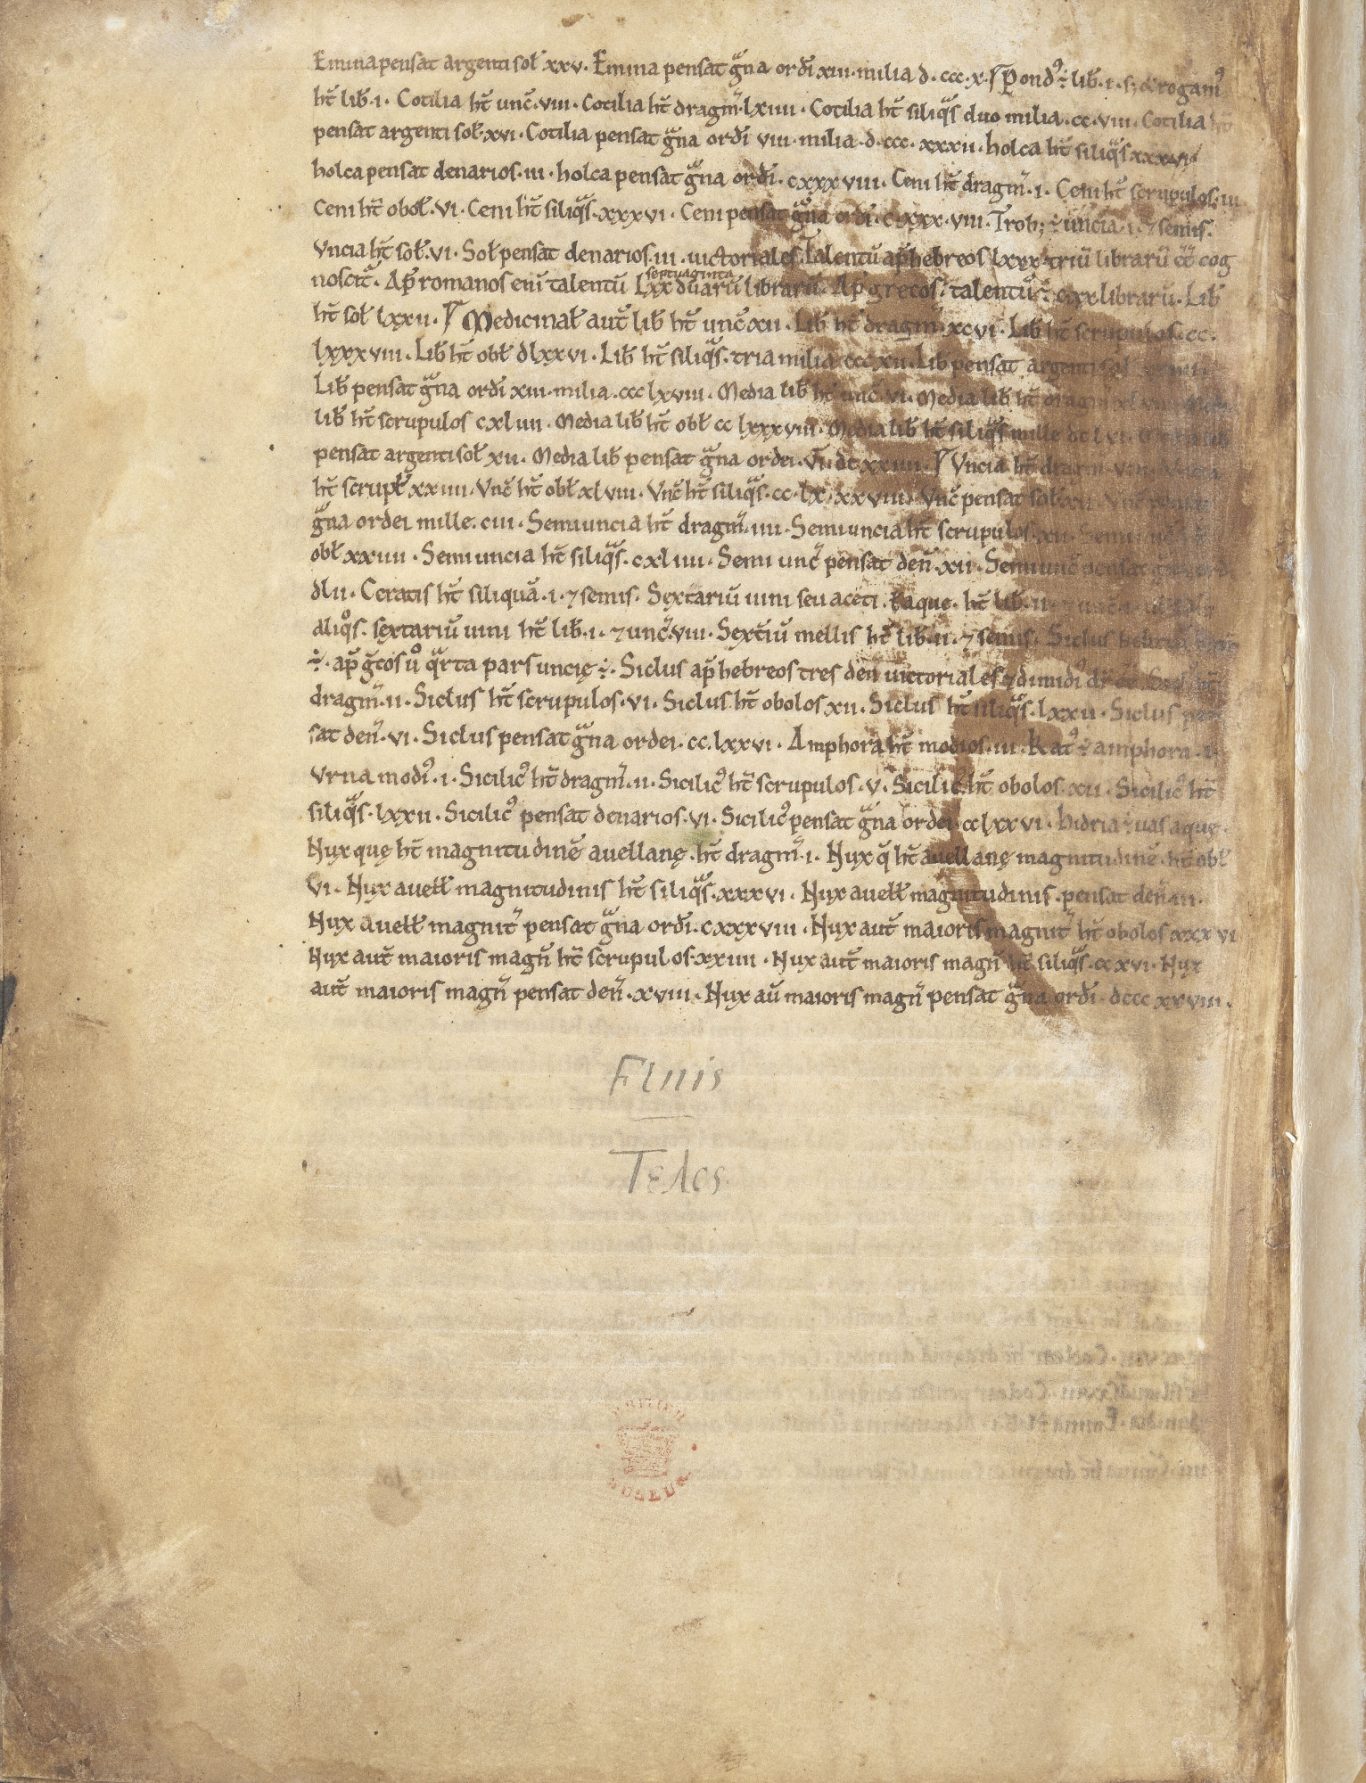 Emina pensat argenti sol̄ xxv. Emina pensat gͣna ordī xiii milia d. ccc. x. Pondꝰ ÷ lib̄. i.
hť lib̄. i. Cotilia hť unc̄. viii. Cotilia hť dragm̄. lxiiii. Cotilia hť siliqͣs duo milia. cc. viii. Cotilia hť
pensat argenti sol̄. xvi. Cotilia pensat gͣna ordī viii. milia. d. ccc. xxxii. holca hť siliqͣs xxxvi.
holca pensat denarios. iii. holca pensat gͣna ordī. cxxxviii. Ceni hť dragm̄. i. Ceni hť scrupulos. iii
Ceni hť obol̄. vi. Ceni hť siliqͣs. xxxvi. Ceni pensat gͣna ordī. c. xxx. viii. Trob; ÷ uncia. i. ⁊ semis.
Vncia hť sol̄. vi. Sol̄ pensat denarios. iii. uictoriales. Talentū ap̄ hebreos lxxx triū librarū cc̄ cog
noscit᷑. Ap̄ romanos eni talentū septuaginta Lxx duarū librarū. Ap̄ grecos. talentū ÷ cxx librarū. Lib̄
hť sol̄ lxxii. Medicinal̄ aut̄ lib̄ hť unc̄ xii. Lib̄ hť dragm̄ xcvi. Lib̄ hť scrupulos. cc.
lxxxviii. Lib̄ hť obl̄ dlxxvi. Lib̄ hť siliqͣs. tria milia cccc xii. Lib̄ pensat argenti sol̄
Lib̄ pensat gͣna ordī xiii. milia. ccc lxviii. Media lib̄ hť unc̄. vi. Media lib̄ hť dragm̄ xlviii.
lib̄ hť scrupulos cxliiii. Media lib̄ hť obl̄ cc lxxxviii. Media lib̄ hť siliqͣs mille dc lvi.
pensat argenti sol̄ xii. Media lib̄ pensat gͣna ordei. vī. dc xxiiii. Vncia hť dragm̄. viii.
hť scrupl̄ xxiiii. Vnc̄ hť obl̄ xlviii. Vnc̄ hť siliqͣs. cc. lx. xxviii. Vnc̄ pensat sol̄. xii
gͣna ordei mille. ciii. Semiuncia hť dragm̄. iiii. Semiuncia hť scrupulos. xii.
obl̄ xxiiii. Semiuncia hť siliqͣs. cxliiii. Semi unc̄ pensat den̄. xii. Semiunc̄ pensat
dlii. Ceratis hť siliquā. i. ⁊ semis. Sextariū uini seu aceti. ł aquę. hť lib̄. ii.
aliqͦs. sextariū uini hť lib̄. i. ⁊ unc̄. viii. Sext̄iū mellis hť lib̄. ii. ⁊ semis. Siclus
÷. ap̄ gͣcos uͦ qͣrta pars uncię ÷. Siclus ap̄ hebreos tres den̄ uictoriales ⁊ dimidī
dragm̄. ii. Siclus hť scrupulos. vi. Siclus hť obolos xii. Siclus hť siliqͣs. lxxii. Siclus pen
sat den̄. vi. Siclus pensat gͣna ordei. cc. lxxvi. Amphora hť modios. iii. Batꝰ ÷ amphora. i.
Vrna modī. i. Sicilicꝰ hť dragm̄. ii. Sicilicꝰ hť scrupulos. v. Sicilicꝰ hť obolos. xii. Sicilicꝰ hť
siliqͣs. lxxii. Sicilicꝰ pensat denarios. vi. Sicilicꝰ pensat gͣna ordei. cc lxxvi. hidria ÷ uas aquę.
Nux quę hť magnitudinē auellanę. hť dragm̄. i. Nux q̄ hť auellanę magnitudinē. hť obl̄
vi. Nux auell̄ magnitudinis hť siliqͣs. xxxvi. Nux auell̄ magnitudinis. pensat den̄ iii.
Nux auell̄ magnit̄ pensat gͣna ordī. cxxxviii. Nux aut̄ maioris magnit̄ hť obolos xxxvi
Nux aut̄ maioris magn̄ hť scrupulos. xxiiii. Nux aut̄ maioris magn̄ hť siliqͣs. ccxvi. Nux
aut̄ maioris magn̄ pensat den̄. xviii. Nux aū maioris magn̄ pensat gͣna ordī. dccc xxviii.
Finis
Τελος
MUSEUM